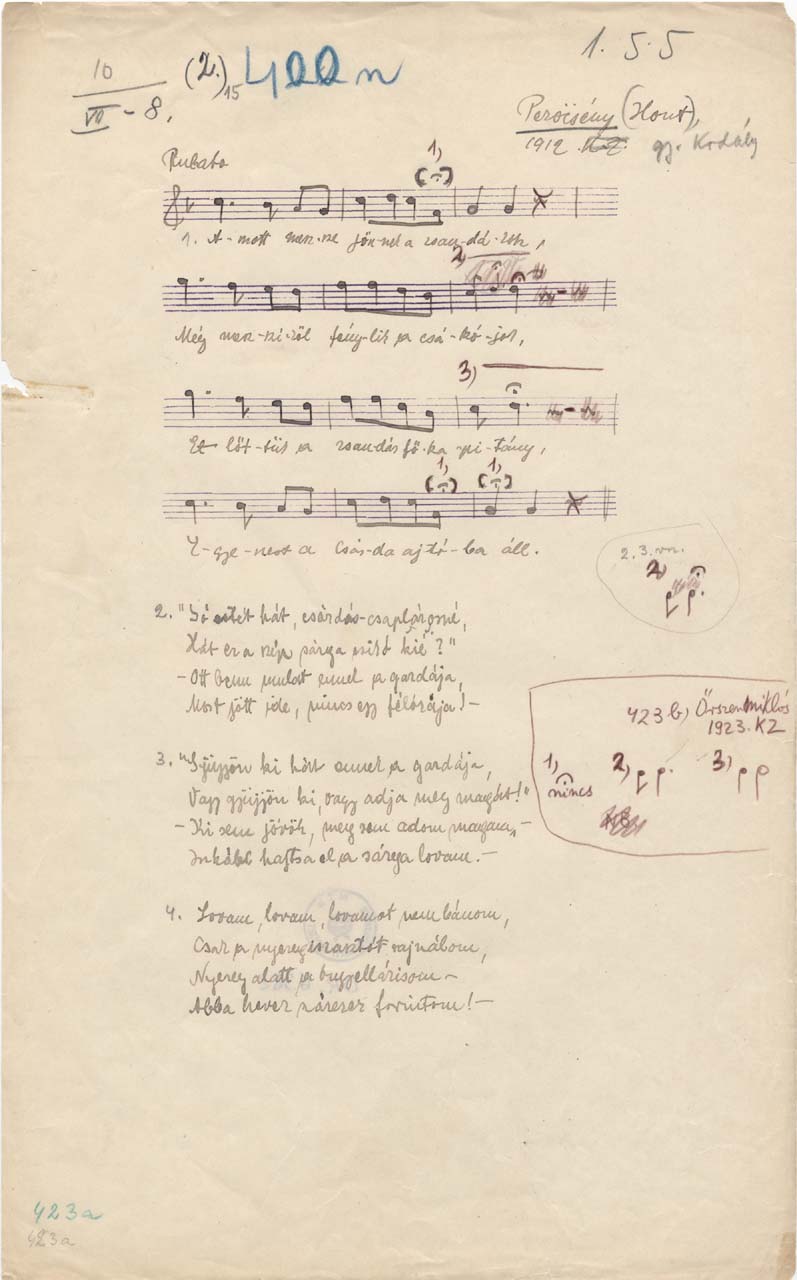 1. 5. 5
10
VII - 8.
(2.) 15
400n
Perőcsény (Hont),
1912. K.Z. gy. Kodály
Rubato
1)
1. A-mott jön-nek a zsan-dá-rok,
2)
Még fény-lik a csá-kó-jok,
3)
El a zsandár fő-ka-pi-tány,
1) 1)
a Csár-da ajtó-ba áll.
2. 3. vsz.
2)
2. " hát, csárdás-csaplárosné,
Hát ez a szép sárga kié?"
- Ott benn mulat ennek a gazdája,
Most jött ide, nincs egy félórája! -
423 b) Őrszentmiklós
1923. KZ
1) nincs 2) 3)
3. " ki hát ennek a gazdája,
Vagy gyüjjön ki, vagy adja meg magát!"
- Ki sem jövök, meg sem adom magam, -
Inkább hajtsa el a sárga lovam. -
4. Lovam, lovam, lovamot nem bánom,
Csak a sajnálom,
Nyereg alatt a bugyellárisom -
Abba hever százezer forintom! -
423a
423a